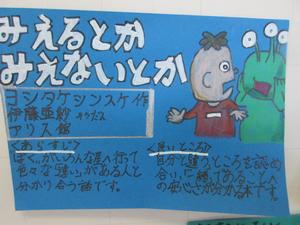 みえるとか
みえないとか
ヨシタケシンスケ作
伊藤亜紗 そうだん
アリス館
<あらすじ>
ぼくが、いろんな星へ行って
色々な「違い」がある人と
分かり合う話です。
<良いところ>
自分と違うところを認め
合い、「一緒」であること
の安心さが分かる本です。